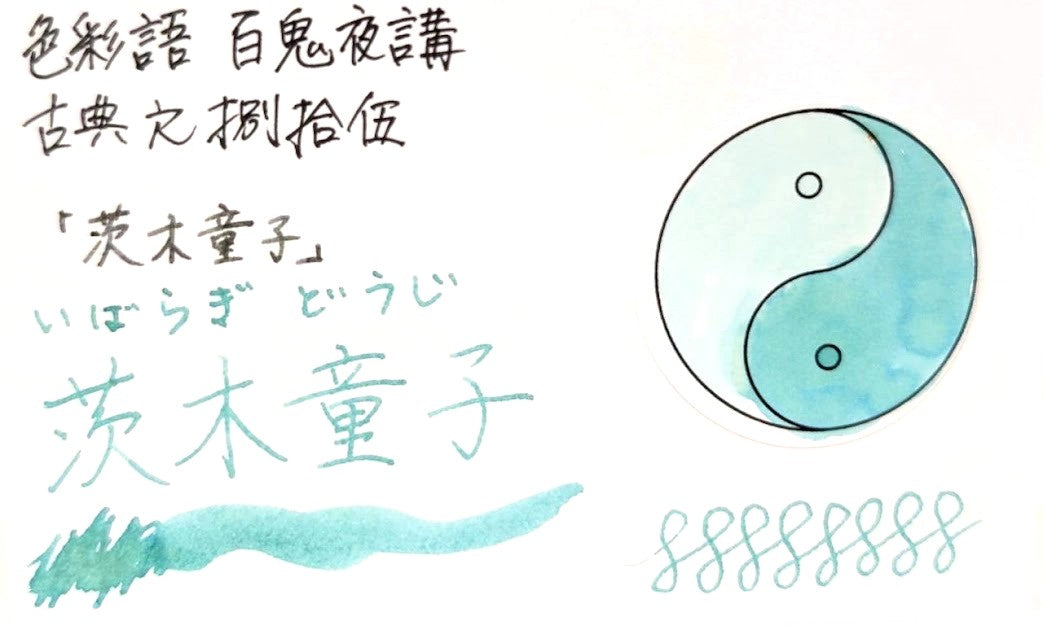 色彩語 百鬼夜講
古典穴 捌拾伍
「茨木童子」
いばらぎ どうじ
茨木童子